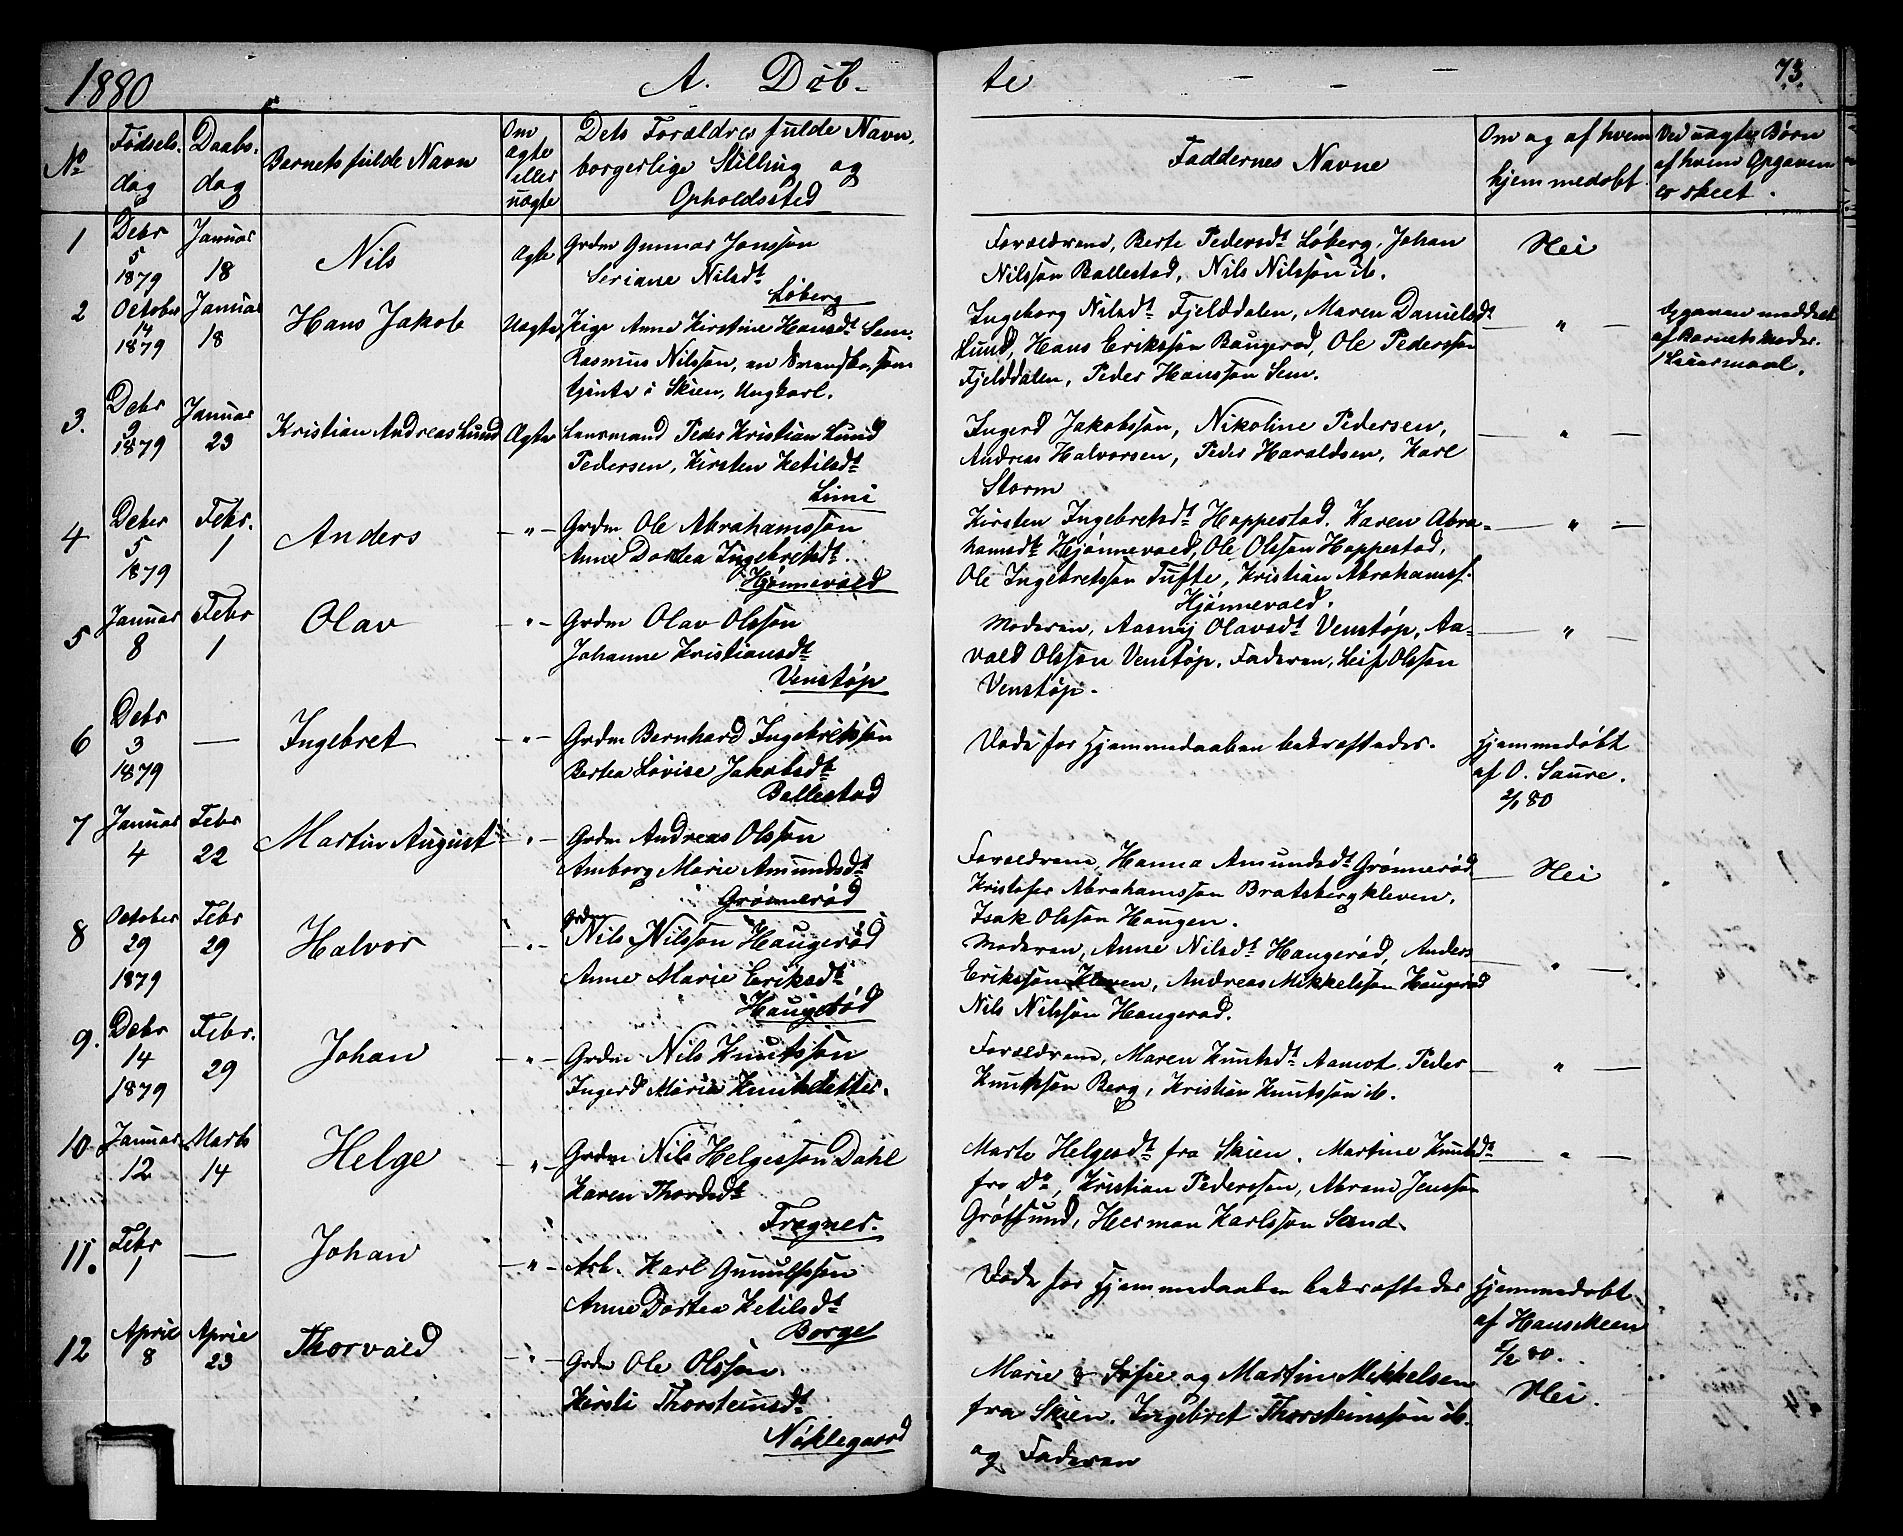 1880 A. Döb- te - - 73.
No
Fødsels-
dag
Daabs-
dag
Barnets fulde Navn
Om
ægte
eller
uægte
Dets Forældres fulde Navn,
borgerlige Stilling og
Opholdssted
Faddernes Navne
Om og af hvem
hjemmedøbt
Ved uægte Børn
af hvem Opgaven
er skeet.
1 Debr 5 1879 Januar 18 Nils Ægte Grdm Gunnar Jonsson
Seriane Nilsdt
Løberg
Forældrene, Berte Pedersdt Løberg, Johan
Nilsson Ballestad, Nils Nilsson ib.
Nei
2 October 14 1879 Januar 18 Hans Jakob Uægte Pige Anne Kirstine Hansdt Sem-
Rasmus Nilsson, en Svenske, som
tjente i Skien, Ungkarl.
Ingeborg Nilsdt Fjelddalen, Maren Danielsdt
Lund, Hans Eriksson Baugerød, Ole Pedersson
Fjelddalen, Peder Hansson Sem.
— " —
Opgaven meddelt
af Barnets Moder.
1 Leiermaal.
3. Debr 9 1879 Januar 23 Kristian Andreas Lund Ægte Lensmand Peder Kristian Lund
Pedersen, Kirsten Ketilsdt
Limi
Ingerd Jakobsson, Nikoline Pedersen,
Andreas Halvorsen, Peder Haraldsen, Karl
Storm
— " —
4 Debr 5 1879 Febr. 1 Anders - " - Grdm Ole Abrahamsson
Anne Dortea Ingebretsdt.
Hjønnevald
Kirsten Ingebretsdt Hoppestad. Karen Abra-
hamsdt Hjønnevald, Ole Olsson Hoppestad,
Ole Ingebretsson Tufte, Kristian Abrahamss.
Hjønnevald.
— " —
5 Januar 8 Febr 1 Olav - " - Grdm Olav Olsson
Johanne Kristiansdt
Venstøp
Moderen, Aasnej Olavsdt Venstøp, Aa-
vald Olsson Venstøp. Faderen, Leif Olsson
Venstøp.
— " —
6 Debr 3 1879 — Ingebret - " - Grdm Bernhard Ingebretsson
Bertea Lovise Jakobsdt
Ballestad
Døde før Hjemmedaaben bekræftedes.
Hjemmedøbt
af O. Saure.
2/1 80
7 Januar 4 Febr 22 Martin August - " - Grdm Andreas Olsson
Amborg Marie Amundsdt
Grønnerød
Forældrene, Hanna Amundsdt Grønnerød
Kristofer Abrahamsson Bratsbergkleven,
Isak Olsson Haugen.
Nei
8 October 29 1879 Febr 29 Halvor - " - Grdm
Nils Nilsson Haugerød
Anne Marie Eriksdt
Haugerød
Moderen, Anne Nilsdt Haugerød, Anders
Eriksson Kleven, Andreas Mikkelsson Haugerød
Nils Nilsson Haugerød.
— " —
9. Debr 14 1879 Febr. 29 Johan - " - Grdm Nils Knutsson
Ingerd Maria Knutsdatter.
Forældrene, Maren Knutsdt Aamot Peder
Knutsson Berg, Kristian Knutsson ib.
— " —
10 Januar 12 Marts 14 Helge - " - Grdm Nils Helgesson Dahl
Karen Thordsdt
Fragner.
Marte Helgesdt fra Skien. Martine Knutsdt
fra do, Kristian Pedersson, Abrand Jensson
Grøtsund, Herman Karlsson Sand.
— " —
11. Febr 1 — Johan - " - Arb. Karl Gunulfsson
Anne Dortea Ketilsdt
Borge
Døde før Hjemmedaaben bekræftedes
Hjemmedøbt
af Hans Keen
2/2 80.
12 April 8 April 23 Thorvald - " - Grdm Ole Olsson.
Kirsti Thorsteinsdt
Nøklegaard
Marie & Sofie og Martin Mikkelsen
fra Skien. Ingebret Thorsteinsson ib.
og Faderen
Nei.